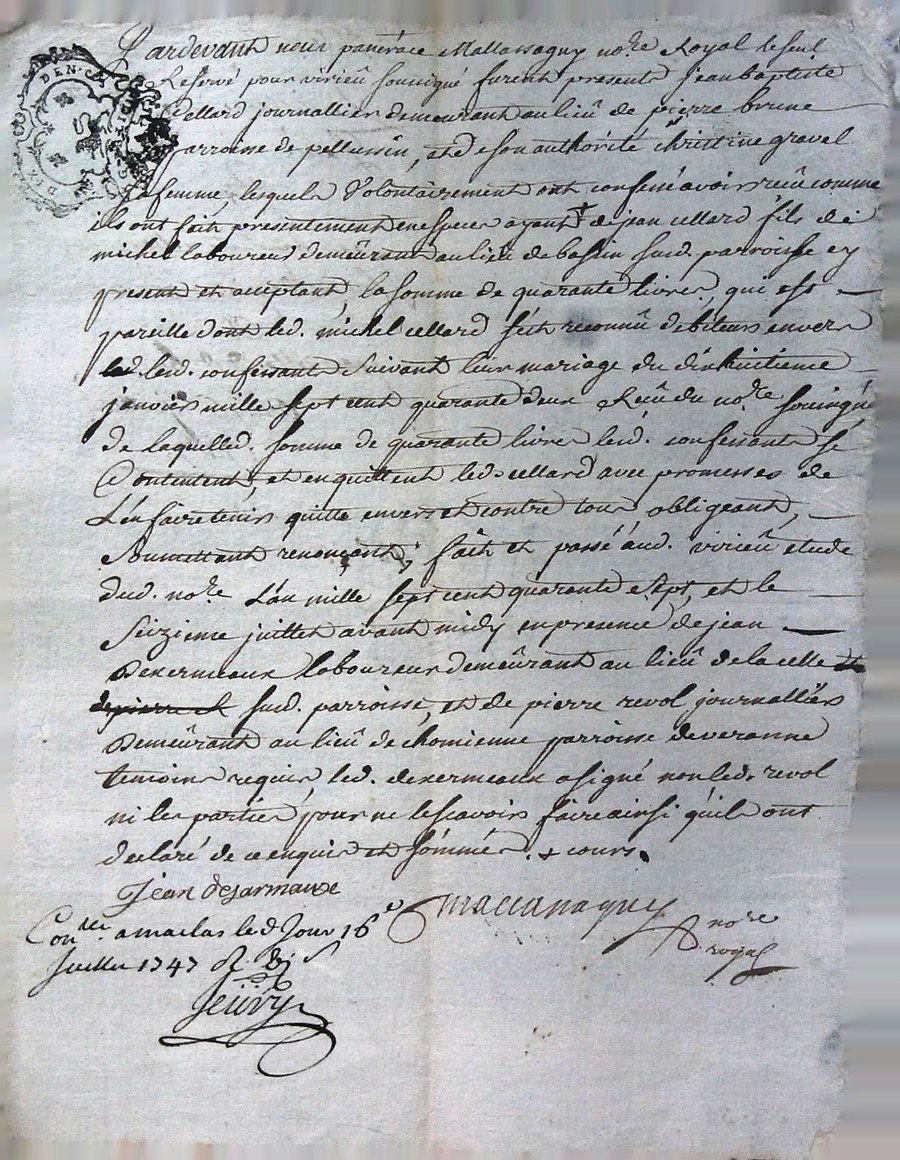 Pardevant nous panérace Mallassagny no.re Royal le seul
Reservé pour virieû sousigné furent presents jean baptiste
Cellard journallier demeurant au lieû de pierre brune
parroisse de pellussin, et de son authórité christine gravel
sa femme, lesquels Volontairement ont confessé avoir reçû comme
ils ont fait presentement en especes ayant de jean cellard fils de
michel laboureur demeûrant au lieû de bassin sud. parroisse cy
present et acceptant, la somme de quarante livres, qui est
pareille dont led. michel cellard s'ést reconnû debiteur envers
lesd. confessants suivant leur mariage du dixhuitieme
janvier mille sept cent quarante deux Reçû du no.re sousigné
de laquelle d. somme de quarante livres lesd. confessants se
Contentent, et en quittent led. cellard avec promesses de
L'en faire tenir quitte envers et contre tous obligeant,
Soumettant renonçant, fait et passé aud. virieû étude
dud. no.re L'an mille sept cent quarante sept, et le
Seizieme juillet avant midy en presence de jean
Dexermeaux laboureur demeûrant au lieû de la celle
sud. parroisse, et de pierre revol journallier
Demeûrant au lieû de chomienne parroisse de veranne
temoins requis led. dexermeaux a signé non led. revol
ni les parties pour ne le scavoir faire ainsi qu'ils ont
declaré de ce enquis et sommés. + cours.
Jean desarmauxe
Macanagny no.re
royal
Con.lé a maclas le d. Jour 16e
Juillet 1747
Seüvy
DEN.